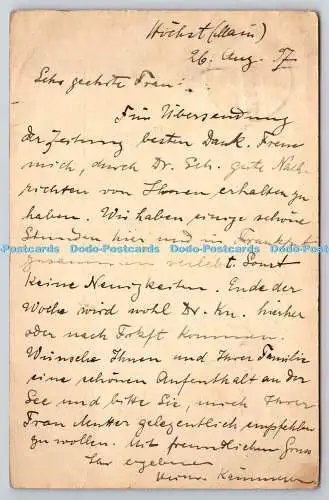 Höchst (Main)
26. Aug. 97
Sehr geehrte Frau!
Für Übersendung
der Zeitung besten Dank. Freue
mich, durch Dr. Sch. gute Nach-
richten von Ihnen erhalten zu
haben. Wir haben einige schöne
Stunden hier und in Frankfurt
Dodo-Postcards Dodo-Postcards Dodo-Postcards Dodo-Postcards
zusammen verlebt. Sonst
keine Neuigkeiten. Ende der
Woche wird wohl Dr. Kn. hierher
oder nach Frkft kommen.
Wünsche Ihnen und Ihrer Familie
eine schönen Aufenthalt an der
See und bitte Sie, mich Ihrer
Frau Mutter gelegentlich empfehlen
zu wollen. Mit freundlichem Gruss
Ihr ergebener